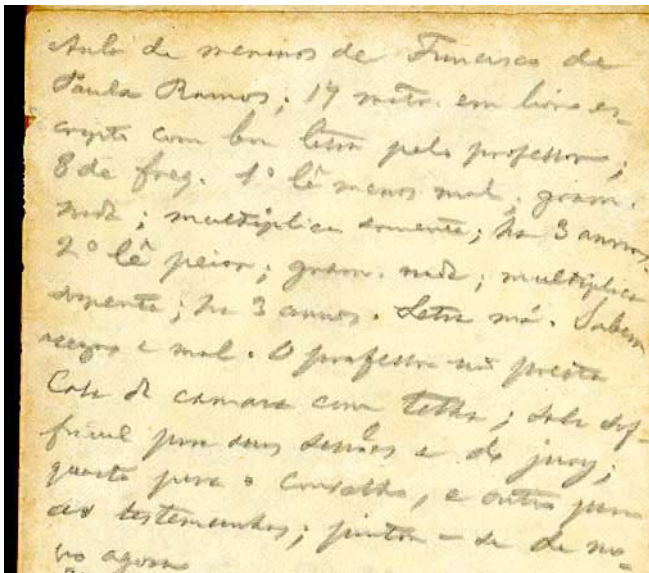 Aula de meninos de Francisco de
Paula Ramos; 14 matr. em livro es-
cripto com boa letra pelo professor;
8 de freq. 1º lê menos mal; gram.
nada; multiplica somente; ha 3 annos.
2º lê peior; gram. nada; multiplica
somente; ha 3 annos. Letra má. Sabem
rezar e mal. O professor não presta
Casa da camara com telha; sala suf-
ficiente para suas sessões e do jury;
quarto para o conselho, e outro para
as testemunhas; pintou-se de no-
vo agora